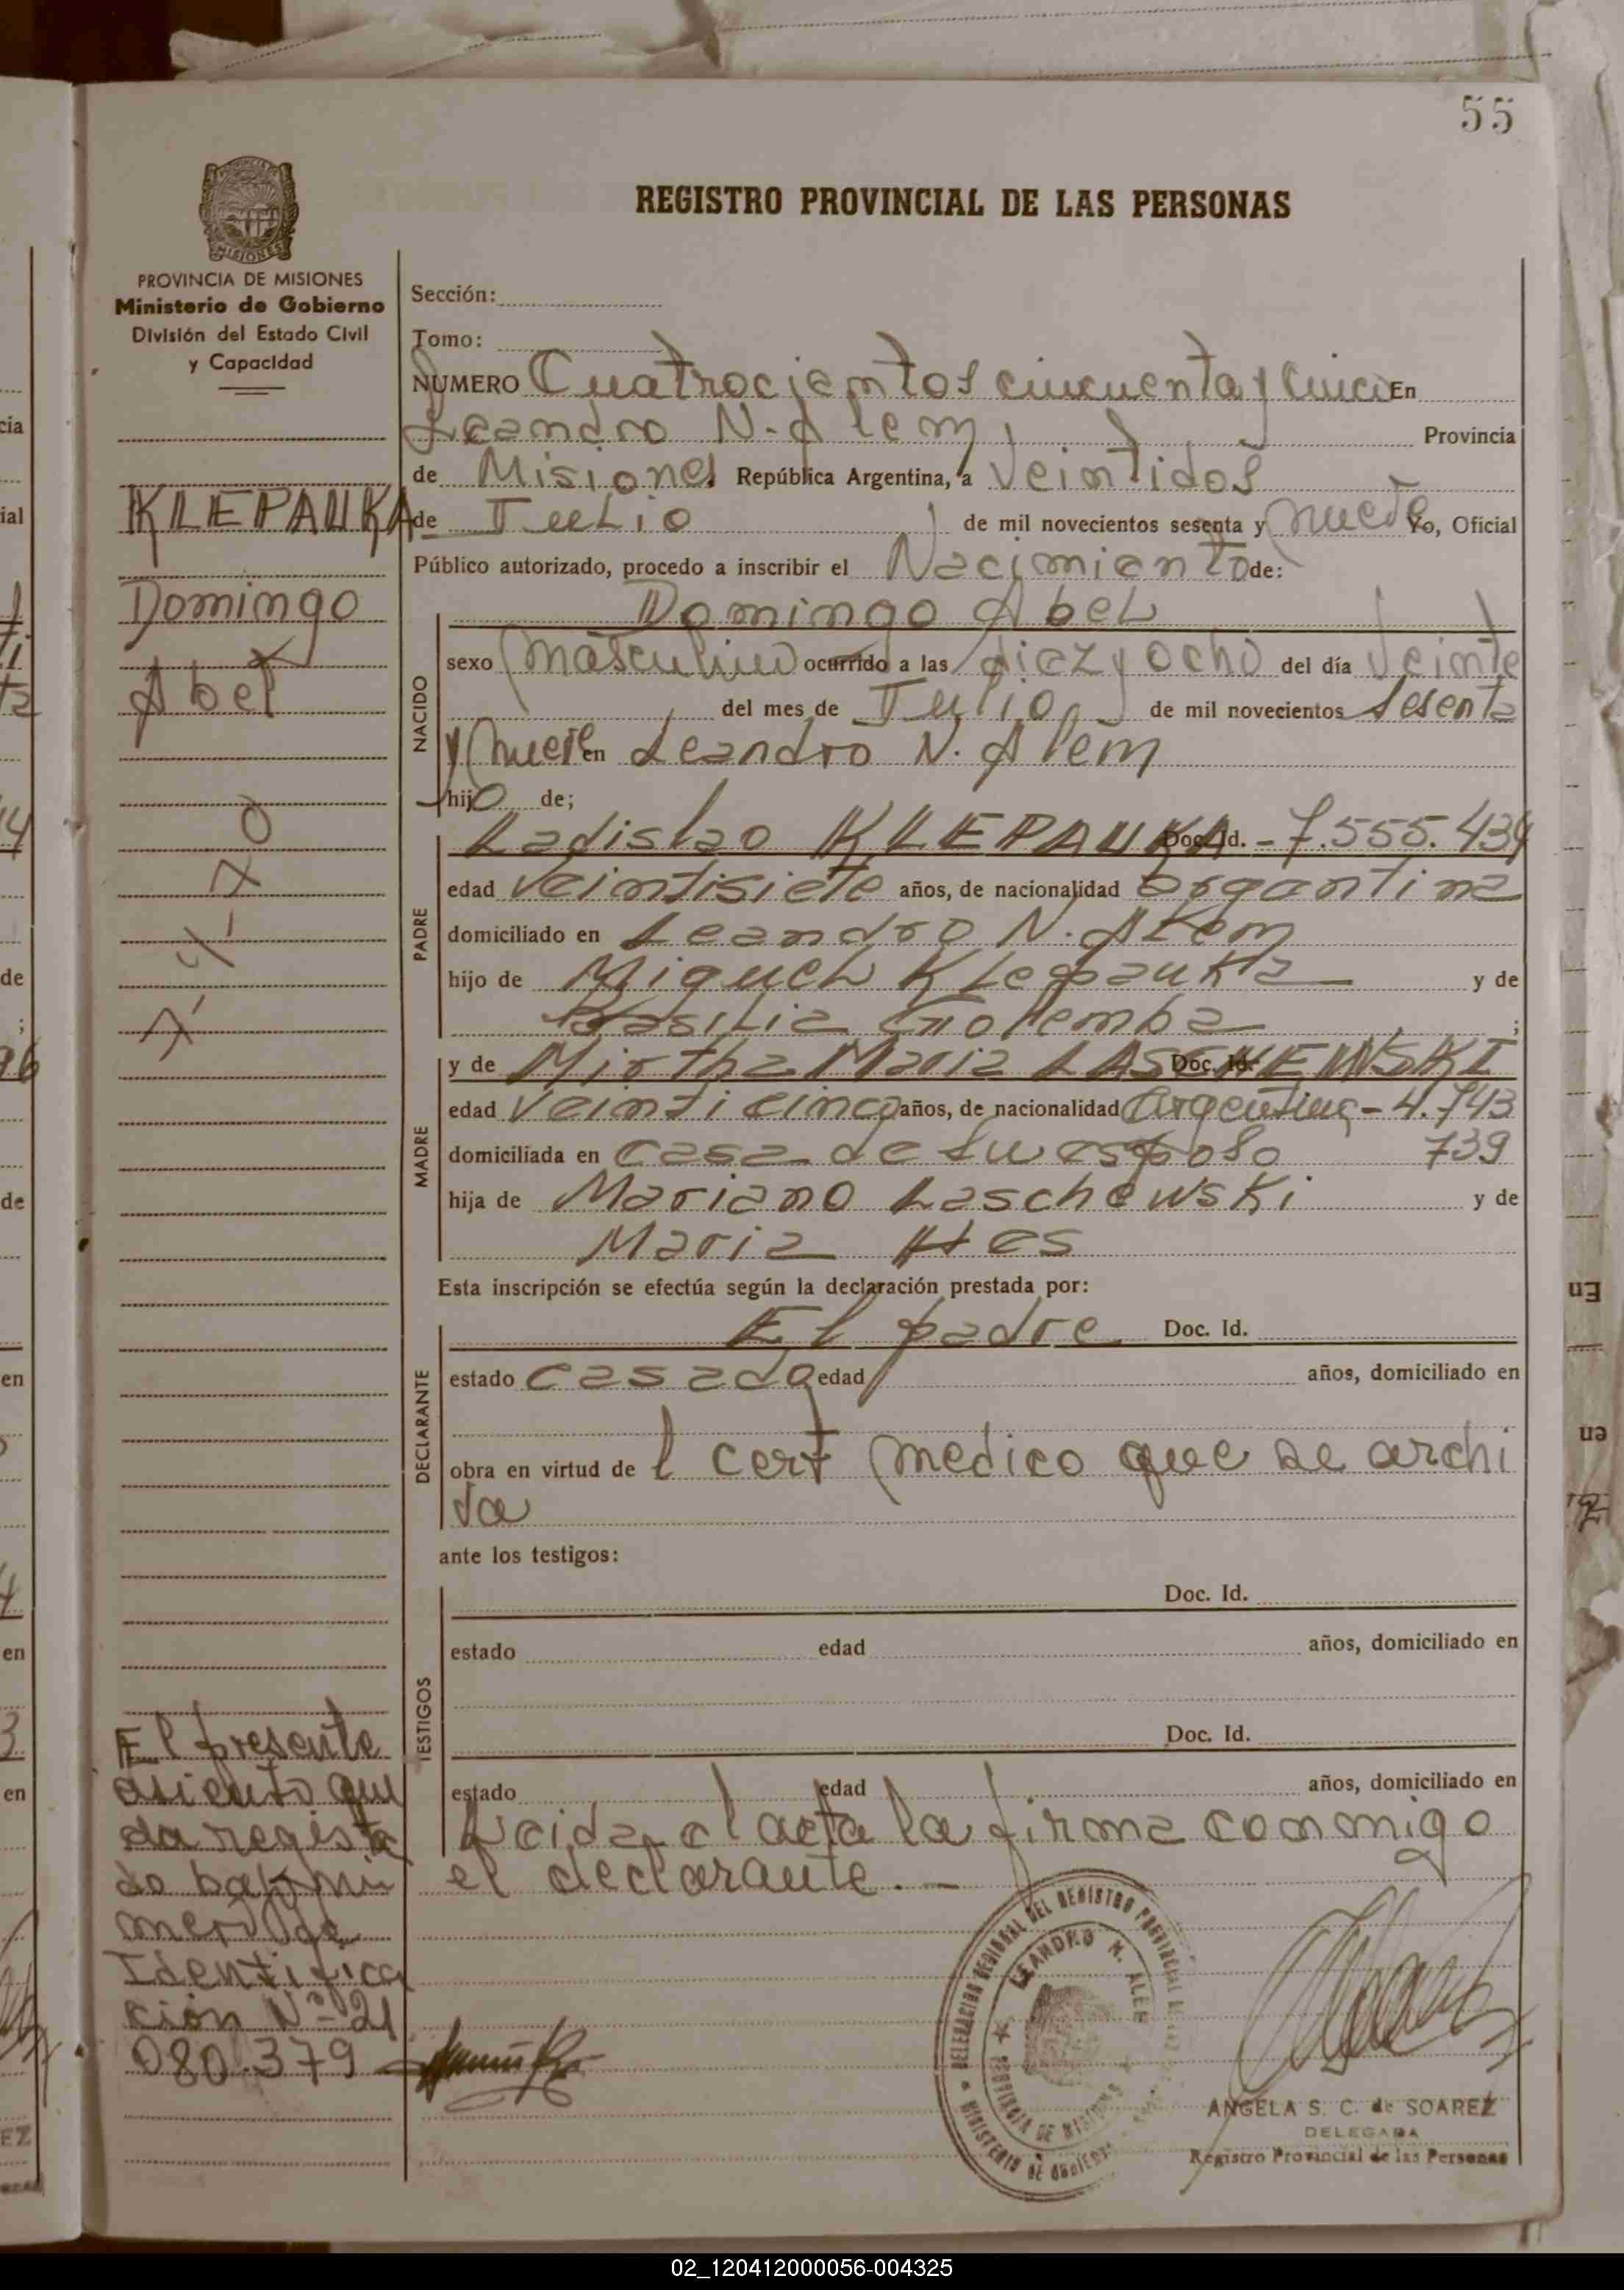 55
REGISTRO PROVINCIAL DE LAS PERSONAS
PROVINCIA DE MISIONES
Ministerio de Gobierno
División del Estado Civil
y Capacidad
KLEPAUKA
Domingo
Abel
Sección:
Tomo:
NUMERO Cuatrocientos cincuenta y cinco En
Leandro N. Alem, Provincia
de Misiones República Argentina, a Veintidos
de Julio de mil novecientos sesenta y nueve Yo, Oficial
Público autorizado, procedo a inscribir el Nacimiento de:
NACIDO
Domingo Abel
sexo masculino ocurrido a las diez y ocho del día Veinte
del mes de Julio de mil novecientos Sesenta
y nueve en Leandro N. Alem
hijo de;
PADRE
Ladislao KLEPAUKA Doc. Id. - 7.555.439
edad Veintisiete años, de nacionalidad argentina
domiciliado en Leandro N. Alem
hijo de Miguel Klepauka y de
Basilia Golemba ;
MADRE
y de Mirtha Maria LASCHEWSKI Doc. Id.
edad Veinticinco años, de nacionalidad Argentina - 4.743
domiciliada en casa de su esposo 739
hija de Mariano Laschewski y de
Maria Hes
Esta inscripción se efectúa según la declaración prestada por:
DECLARANTE
El padre Doc. Id.
estado casado edad años, domiciliado en
obra en virtud de l cert medico que se archi
va
ante los testigos:
TESTIGOS
Doc. Id.
estado edad años, domiciliado en
Doc. Id.
estado edad años, domiciliado en
Leida el acta la firma conmigo
el declarante. -
El presente
asiento que
da registra
do bajo nú
mero de
Identifica
ción Nº 21
080.379
DELEGACION REGIONAL DEL REGISTRO PROVINCIAL DE LAS
LEANDRO N. ALEM
PROVINCIA DE MISIONES
MINISTERIO DE GOBIERNO
ANGELA S. C. de SOAREZ
DELEGADA
Registro Provincial de las Personas
02_120412000056-004325